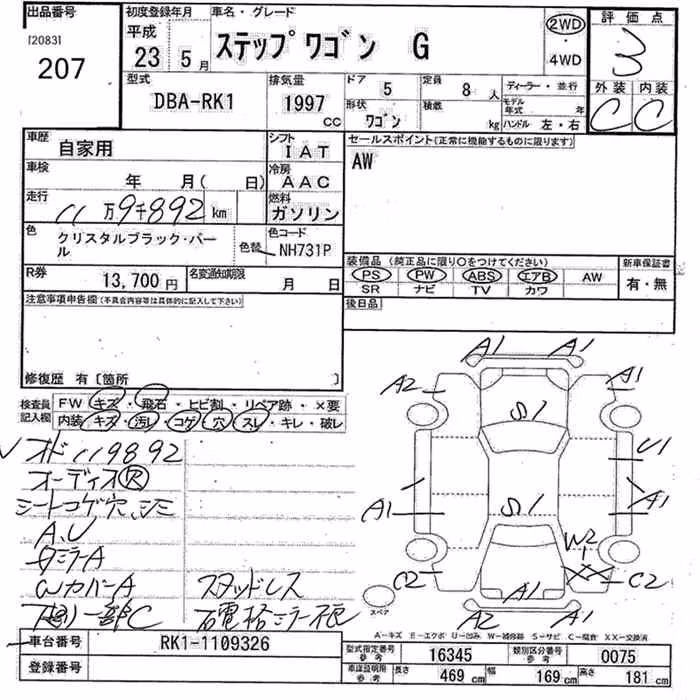 出品番号
[2083]
207
初度登録年月
平成
23 5月
車名・グレード
ステップ ワゴン G
2WD
・
4WD
評価点
3
外装 内装
C C
型式
DBA-RK1
排気量
1997
CC
ドア
5
定員
8 人
形状
ワゴン
積載
kg
ディーラー・並行
モデル年式 年
ハンドル 左・右
車歴
自家用
車検
年 月( 日)
走行
11万9千892 km
色
クリスタルブラック・パール
色替
シフト
IAT
冷房
AAC
燃料
ガソリン
色コード
NH731P
セールスポイント(正常に機能するものに限ります)
AW
R券
13,700 円
名変通知期限
月 日
装備品 (純正品に限り○をつけてください)
PS PW ABS エアB AW
SR ナビ TV カワ
新車保証書
有・無
後日品
注意事項申告欄(不具合内容等は具体的に記入して下さい)
修復歴 有 [箇所 ]
検査員記入欄
FW キズ・飛石・ヒビ割・リペア跡・×要
内装 キズ・汚レ・コゲ・穴・スレ・キレ・破レ
オド119892
オーディオR
シートコゲ穴、シミ
A、U
ミラーA
Wカバー A
一部C
スタッドレス
A1 A1
A2 A1
S1
U1
A1 S1 A1
W2
C2 C2
A1
A2 A1
スペア
A-キズ E-エクボ U-凹み W-補修跡 S-サビ C-腐食 XX-交換済
車台番号
RK1-1109326
登録番号
型式指定番号
参考
16345
類別区分番号
参考
0075
車庫証明用
参考
長さ
469 cm
幅
169 cm
高さ
181 cm